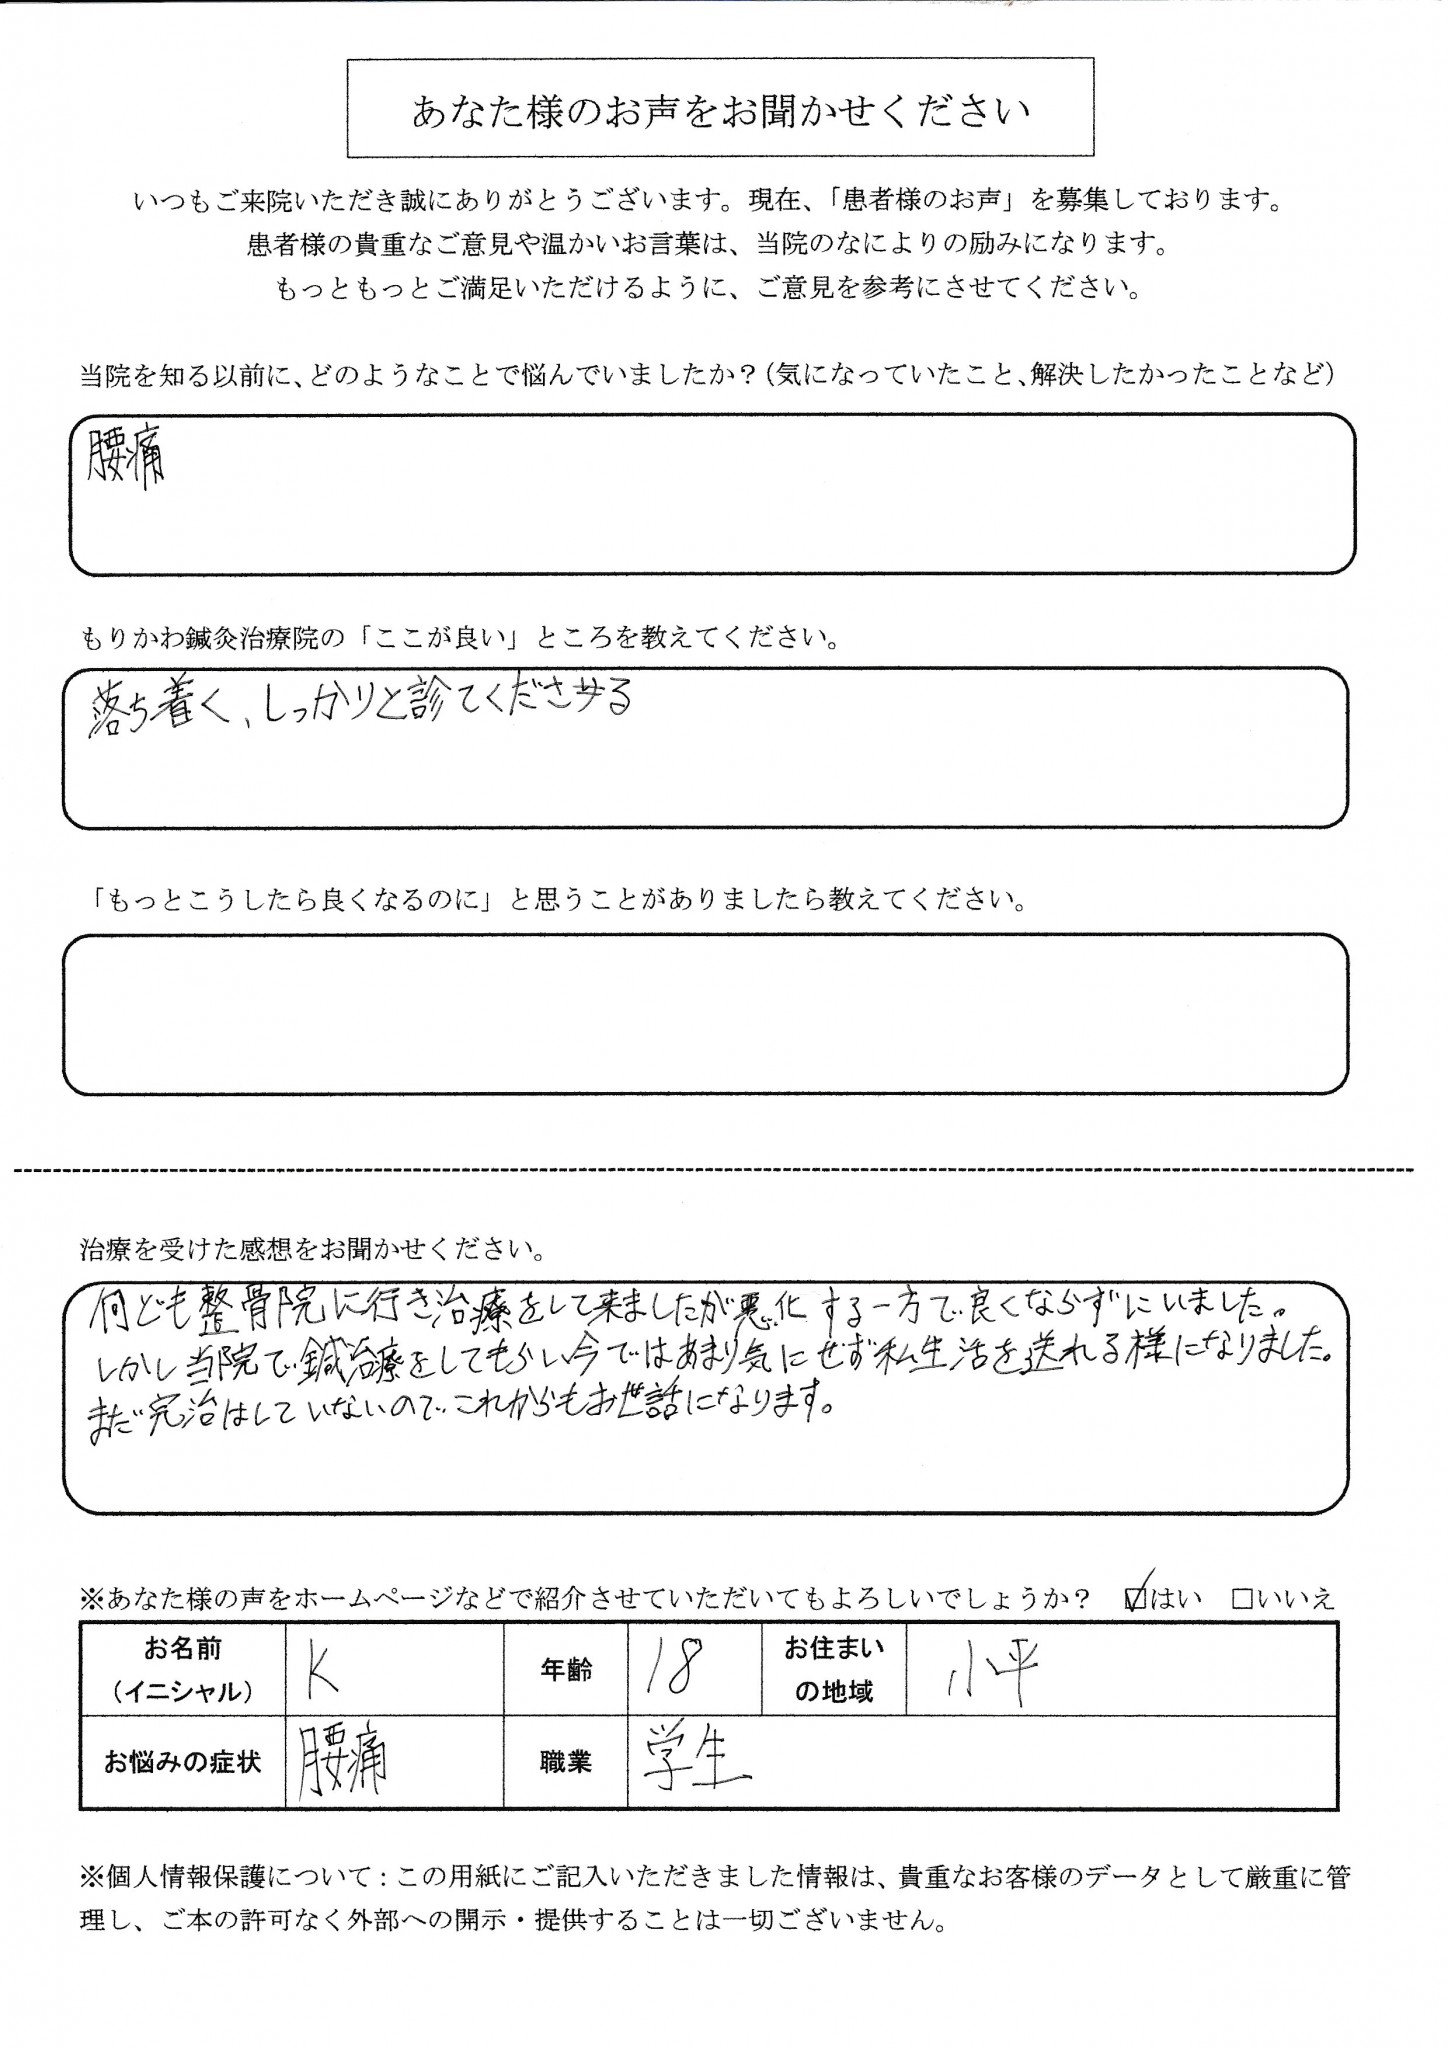 あなた様のお声をお聞かせください
いつもご来院いただき誠にありがとうございます。現在、「患者様のお声」を募集しております。
患者様の貴重なご意見や温かいお言葉は、当院のなによりの励みになります。
もっともっとご満足いただけるように、ご意見を参考にさせてください。
当院を知る以前に、どのようなことで悩んでいましたか？（気になっていたこと、解決したかったことなど）
腰痛
もりかわ鍼灸治療院の「ここが良い」ところを教えてください。
落ち着く、しっかりと診てくださせる
「もっとこうしたら良くなるのに」と思うことがありましたら教えてください。
治療を受けた感想をお聞かせください。
何ども整骨院に行き治療をして来ましたが悪化する一方で良くならずにいました。
しかし当院で鍼治療をしてもらい今ではあまり気にせず私生活を送れる様になりました。
まだ完治はしていないのでこれからもお世話になります。
※あなた様の声をホームページなどで紹介させていただいてもよろしいでしょうか？ ☑はい □いいえ
お名前（イニシャル） K 年齢 18 お住まいの地域 小平
お悩みの症状 腰痛 職業 学生
※個人情報保護について：この用紙にご記入いただきました情報は、貴重なお客様のデータとして厳重に管
理し、ご本の許可なく外部への開示・提供することは一切ございません。